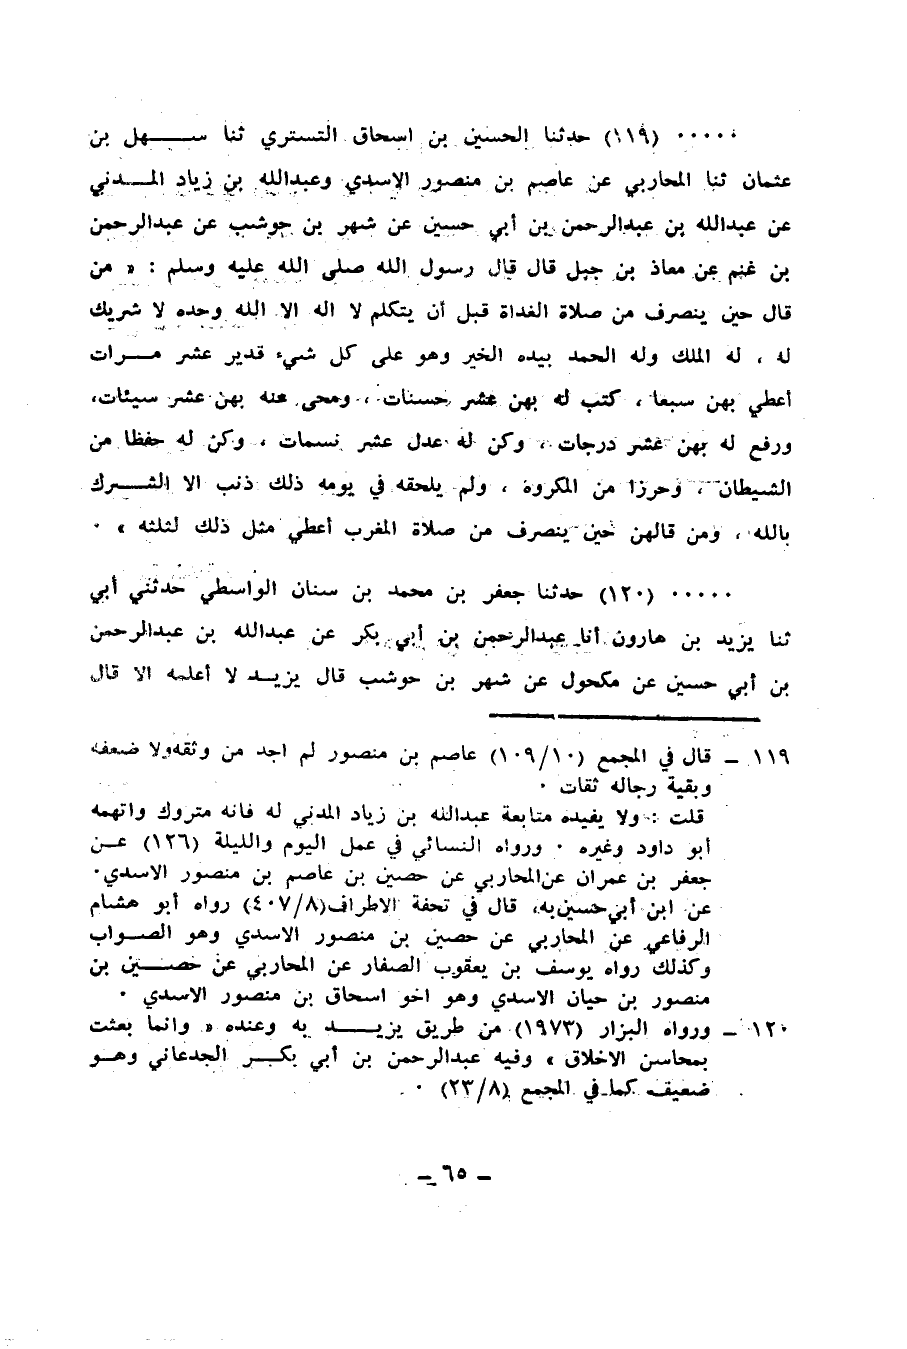 ..... (١١٩) حدثنا الحسين بن اسحاق التستري ثنا سهل بن
عثمان ثنا المحاربي عن عاصم بن منصور الاسدي وعبدالله بن زياد المدني
عن عبدالله بن عبدالرحمن بن أبي حسين عن شهر بن حوشب عن عبدالرحمن
بن غنم عن معاذ بن جبل قال قال رسول الله صلى الله عليه وسلم : « من
قال حين ينصرف من صلاة الغداة قبل أن يتكلم لا اله الا الله وحده لا شريك
له ، له الملك وله الحمد بيده الخير وهو على كل شيء قدير عشر مرات
أعطي بهن سبعا ، كتب له بهن عشر حسنات ، ومحى عنه بهن عشر سيئات،
ورفع له بهن عشر درجات ، وكن له عدل عشر نسمات ، وكن له حفظا من
الشيطان ، وحرزا من المكروه ، ولم يلحقه في يومه ذلك ذنب الا الشرك
بالله ، ومن قالهن حين ينصرف من صلاة المغرب أعطي مثل ذلك لثلثه » .
..... (١٢٠) حدثنا جعفر بن محمد بن سنان الواسطي حدثني أبي
ثنا يزيد بن هارون أنا عبدالرحمن بن أبي بكر عن عبدالله بن عبدالرحمن
بن أبي حسين عن مكحول عن شهر بن حوشب قال يزيد لا أعلمه الا قال
١١٩ - قال في المجمع (١٠٩/١٠) عاصم بن منصور لم اجد من وثقه ولا ضعفه
وبقية رجاله ثقات .
قلت : ولا يفيده متابعة عبدالله بن زياد المدني له فانه متروك واتهمه
أبو داود وغيره . ورواه النسائي في عمل اليوم والليلة (١٢٦) عن
جعفر بن عمران عن المحاربي عن حصين بن عاصم بن منصور الاسدي.
عن ابن أبي حسين به، قال في تحفة الاطراف(٤٠٧/٨) رواه أبو هشام
الرفاعي عن المحاربي عن حصين بن منصور الاسدي وهو الصواب
وكذلك رواه يوسف بن يعقوب الصفار عن المحاربي عن حصين بن
منصور بن حيان الاسدي وهو اخو اسحاق بن منصور الاسدي .
١٢٠ - ورواه البزار (١٩٧٣) من طريق يزيد به وعنده « وانما بعثت
بمحاسن الاخلاق » وفيه عبدالرحمن بن أبي بكر الجدعاني وهو
ضعيف كما في المجمع (٢٣/٨) .
- ٦٥ -